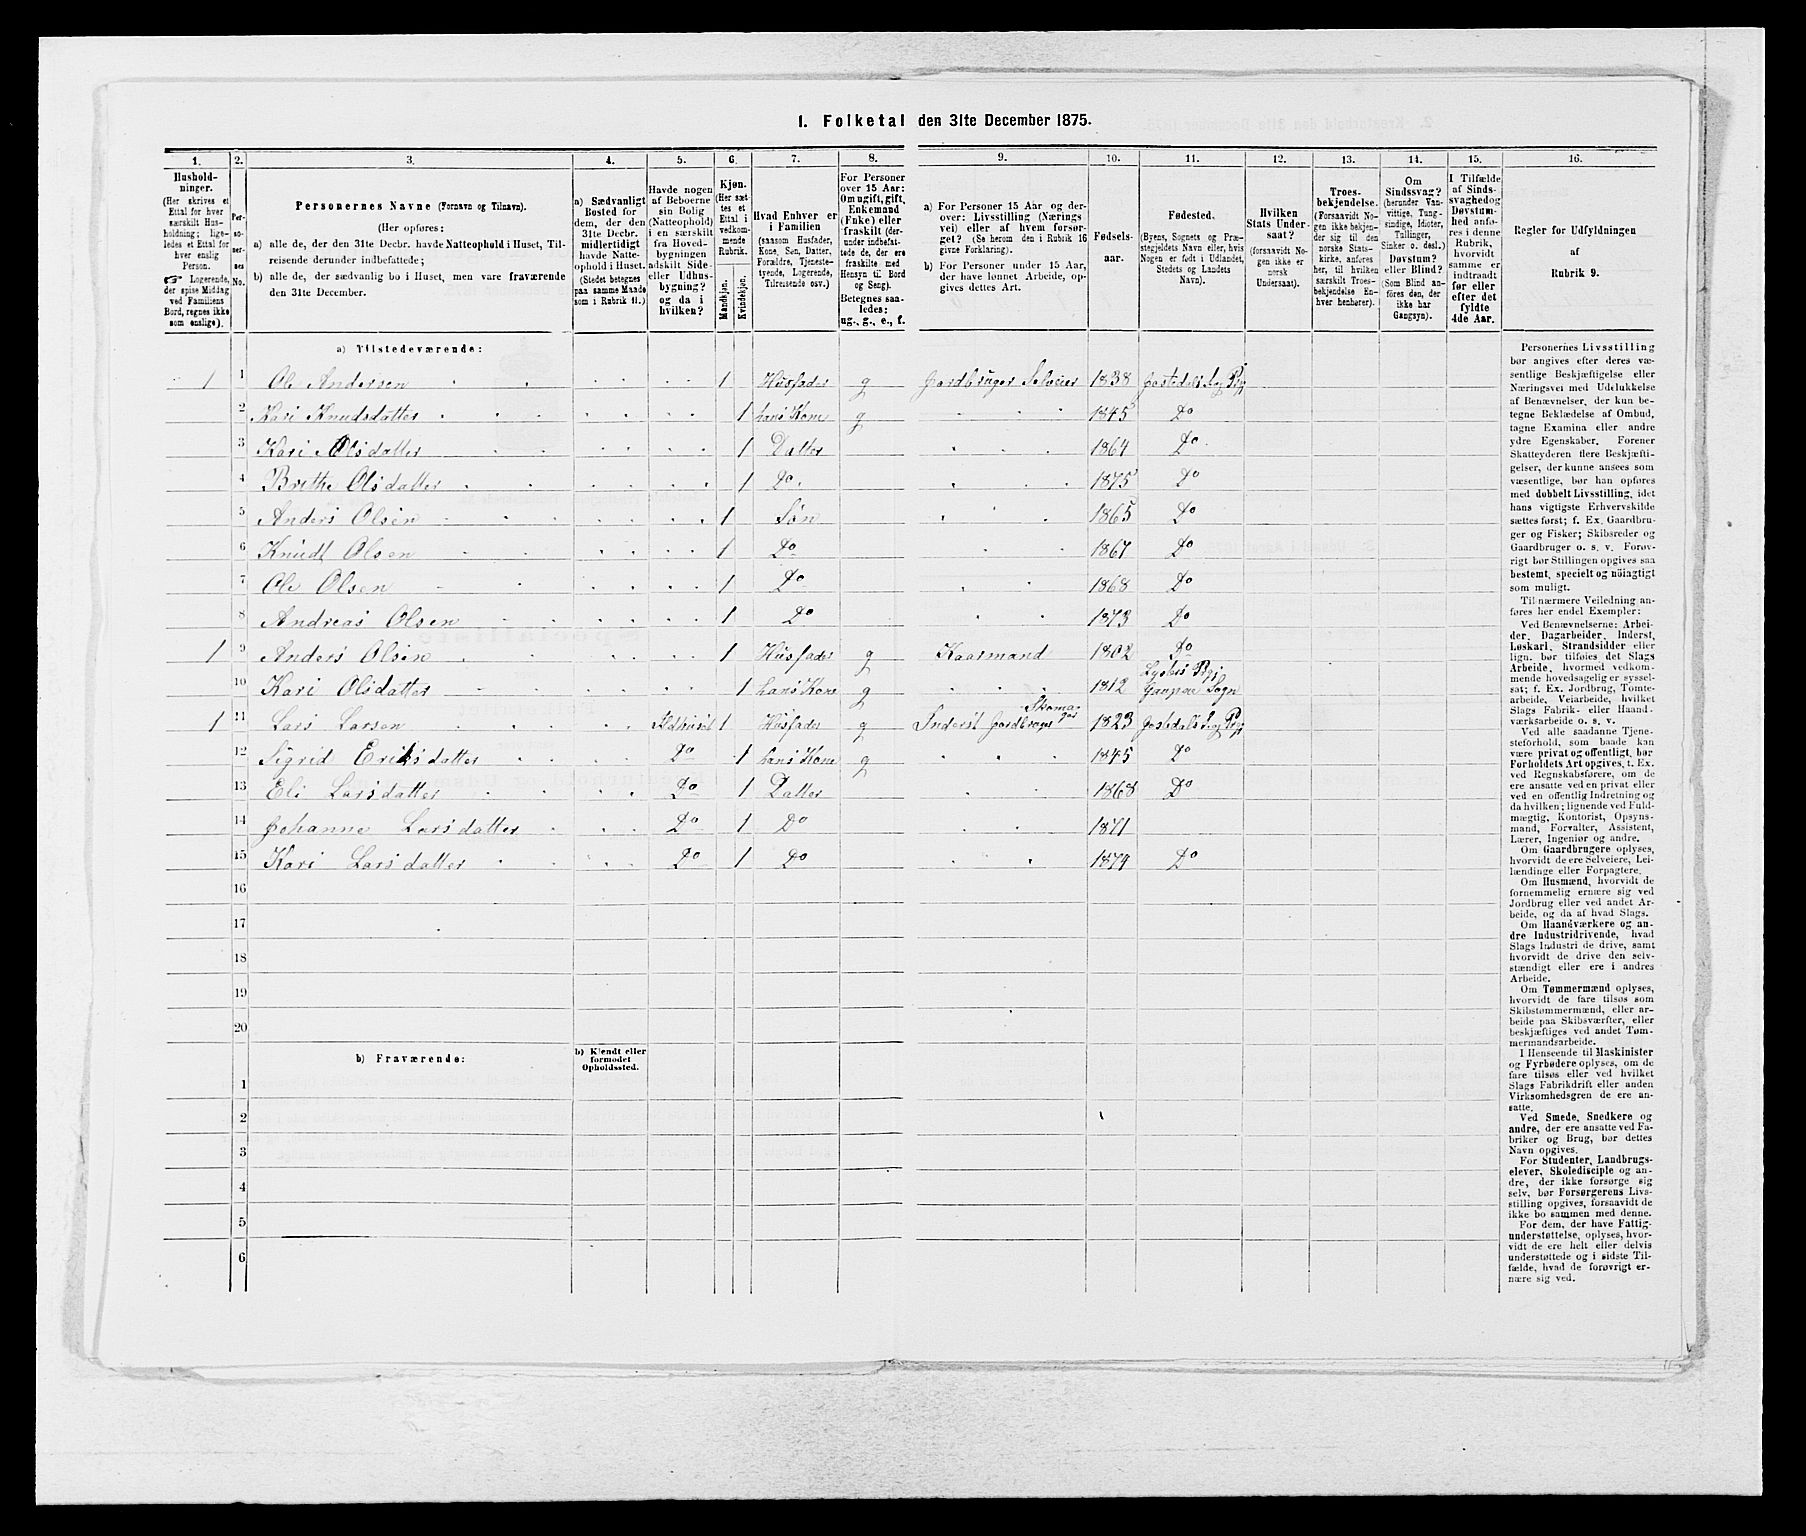 1. Folketal den 31te December 1875.
1. 2. 3. 4. 5. 6. 7. 8. 9. 10. 11. 12. 13. 14. 15. 16.
Hushold-
ninger.
(Her skrives et
Ettal for hver
særskilt Hus-
holdning; lige-
ledes et Ettal for
hver enslig
Person.
☞ Logerende,
der spise Middag
ved Familiens
Bord, regnes ikke
som enslige).
Per-
so-
ner-
nes
No.
Personernes Navne (Fornavn og Tilnavn).
(Her opføres:
a) alle de, der den 31te Decbr. havde Natteophold i Huset, Til-
reisende derunder indbefattede;
b) alle de, der sædvanlig bo i Huset, men vare fraværende
den 31te December.
a) Sædvanligt
Bosted for
dem, der den
31te Decbr.
midlertidigt
havde Natte-
ophold i Huset.
(Stedet betegnes
paa samme Maade
som i Rubrik 11.)
Havde nogen
af Beboerne
sin Bolig
(Natteophold)
i en særskilt
fra Hoved-
bygningen
adskilt Side-
eller Udhus-
bygning?
og da i
hvilken?
Kjøn.
(Her sæt-
tes et
Ettal i
vedkom-
mende
Rubrik.
Mandkjøn.
Kvindekjøn.
Hvad Enhver er
i Familien
(saasom Husfader,
Kone, Søn, Datter,
Forældre, Tjeneste-
tyende, Logerende,
Tilreisende osv.)
For Personer
over 15 Aar:
Om ugift, gift,
Enkemand
(Enke) eller
fraskilt (der-
under indbefat-
tede de, der ere
fraskilte med
Hensyn til Bord
og Seng).
Betegnes saa-
ledes:
ug., g., e., f.
a) For Personer 15 Aar og der-
over: Livsstilling (Nærings
vei) eller af hvem forsør-
get? (Se herom den i Rubrik 16
givne Forklaring).
b) For Personer under 15 Aar,
der have lønnet Arbeide, op-
gives dettes Art.
Fødsels-
aar.
Fødested.
(Byens, Sognets og Præ-
stegjeldets Navn eller, hvis
Nogen er født i Udlandet,
Stedets og Landets
Navn).
Hvilken
Stats Under-
saat?
(forsaavidt No-
gen ikke er
norsk
Undersaat).
Troes-
bekjendelse.
(Forsaavidt No-
gen ikke bekjen-
der sig til den
norske Stats-
kirke, anføres
her, til hvilken
særskilt Troes-
bekjendelse En-
hver henhører).
Om
Sindssvag?
(herunder Van-
vittige, Tung-
sindige, Idioter,
Tullinger,
Sinker o. desl.)
Døvstum?
eller Blind?
(Som Blind an-
føres den, der
ikke har
Gangsyn).
I Tilfælde
af Sinds-
svaghed og
Døvstum-
hed anfø-
res i denne
Rubrik,
hvorvidt
samme er
indtraadt
før eller
efter det
fyldte
4de Aar.
Regler for Udfyldningen
af
Rubrik 9.
a) Tilstedeværende:
1 1 Ole Andersen 1 Husfader g Gardbruger Selveier 1838 Jostedals Sog Prg
2 Kari Knudsdatter 1 hans Kone g 1845 Do
3 Kari Olsdatter 1 Datter 1864 Do
4 Brithe Olsdatter 1 Do 1875 Do
5 Anders Olsen 1 Søn 1865 Do
6 Knudt Olsen 1 Do 1867 Do
7 Ole Olsen 1 Do 1868 Do
8 Andreas Olsen 1 Do 1873 Do
1 9 Anders Olsen 1 Husfader g Kaarmand 1802 Do
10 Kari Olsdatter 1 hans Kone g 1812 Lysters Prgj Gaupne Sogn
1 11 Lars Larsen Ildhuset 1 Husfader g Inderst Gardbruger Skomager 1823 Jostedals Sog Prg
12 Sigrid Eriksdatter Do 1 hans Kone g 1845 Do
13 Eli Larsdatter Do 1 Datter 1868 Do
14 Johanne Larsdatter Do 1 Do 1871
15 Kari Larsdatter Do 1 Do 1874 Do
16
17
18
19
20
b) Fraværende:
b) Kjendt eller
formodet
Opholdssted.
1
2
3
4
5
6
Personernes Livsstilling
bør angives efter deres væ-
sentlige Beskjæftigelse eller
Næringsvei med Udelukkelse
af Benævnelser, der kun be-
tegne Beklædelse af Ombud,
tagne Examina eller andre
ydre Egenskaber. Forener
Skatteyderen flere Beskjæfti-
gelser, der kunne ansees som
væsentlige, bør han opføres
med dobbelt Livsstilling, idet
hans vigtigste Erhvervskilde
sættes først; f. Ex. Gaardbru-
ger og Fisker; Skibsreder og
Gaardbruger o. s. v. Forøv-
rigt bør Stillingen opgives saa
bestemt, specielt og nöiagtigt
som muligt.
Til nærmere Veiledning an-
føres her endel Exempler:
Ved Benævnelserne: Arbei-
der, Dagarbeider, Inderst,
Løskarl, Strandsidder eller
lign. bør tilføies det Slags
Arbeide, hvormed vedkom-
mende hovedsagelig er syssel-
sat; f. Ex. Jordbrug, Tomte-
arbeide, Veiarbeide, hvilket
Slags Fabrik- eller Haand-
værksarbeide o. s. v.
Ved alle saadanne Tjene-
steforhold, som baade kan
være privat og offentligt, bør
Forholdets Art opgives, t. Ex.
ved Regnskabsførere, om de
ere ansatte ved en privat eller
ved en offentlig Indretning og
da hvilken; lignende ved Fuld-
mægtig, Kontorist, Opsyns-
mand, Forvalter, Assistent,
Lærer, Ingeniør og andre.
Om Gaardbrugere oplyses,
hvorvidt de ere Selveiere, Lei-
lændinge eller Forpagtere.
Om Husmænd, hvorvidt de
fornemmelig ernære sig ved
Jordbrug eller ved andet Ar-
beide, og da af hvad Slags.
Om Haandværkere og an-
dre Industridrivende, hvad
Slags Industri de drive, samt
hvorvidt de drive den selv-
stændigt eller ere i andres
Arbeide.
Om Tømmermænd oplyses,
hvorvidt de fare tilsøs som
Skibstømmermænd, eller ar-
beide paa Skibsværfter, eller
beskjæftiges ved andet Tøm-
mermandsarbeide.
I Henseende til Maskinister
og Fyrbødere oplyses, om de
fare tilsøs eller ved hvilket
Slags Fabrikdrift eller anden
Virksomhedsgren de ere an-
satte.
Ved Smede, Snedkere og
andre, der ere ansatte ved Fa-
briker og Brug, bør dettes
Navn opgives.
For Studenter, Landbrugs-
elever, Skoledisciple og an-
dre, der ikke forsørge sig
selv, bør Forsørgerens Livs-
stilling opgives, forsaavidt de
ikke bo sammen med denne.
For dem, der have Fattig-
understøttelse, oplyses, hvor-
vidt de ere helt eller delvis
understøttede og i sidste Til-
fælde, hvad de forøvrigt er-
nære sig ved.